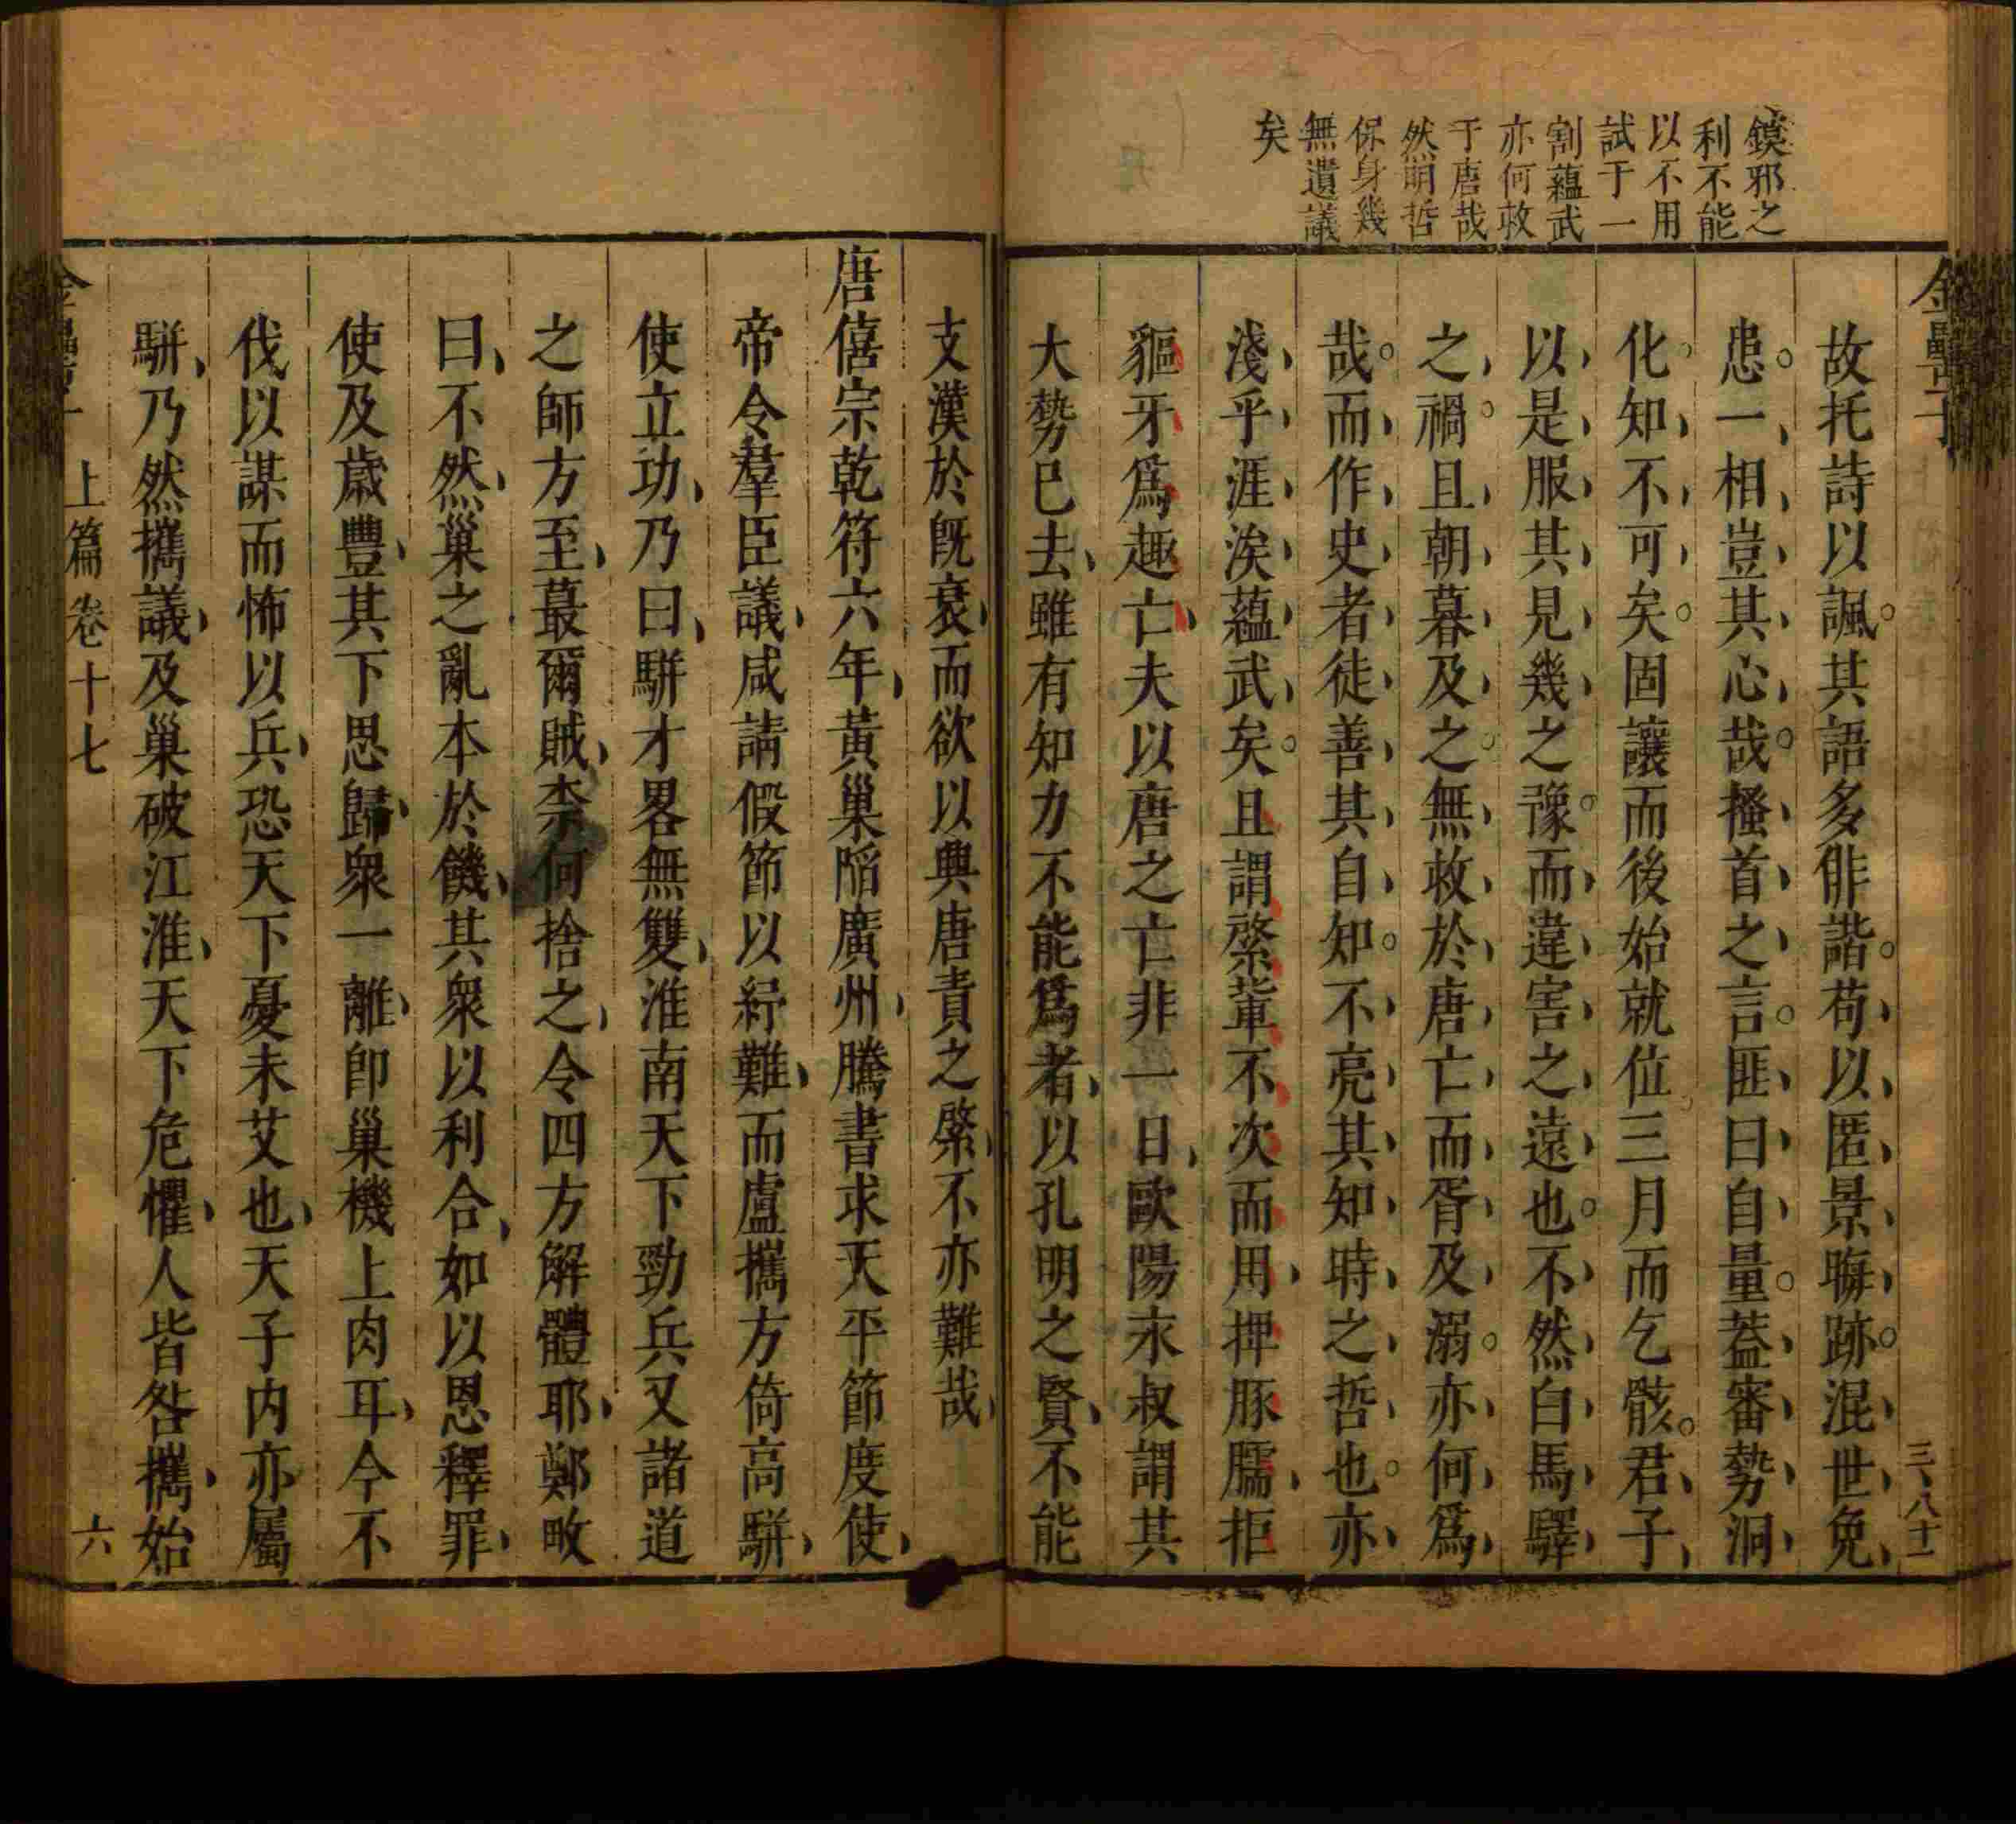 鏌邪之
利不能
以不用
試于一
割蘊武
亦何救
于唐哉
然明哲
保身幾
無遺議
矣
金罍子
三、八十一
故托詩以諷。其語多俳諧。苟、以、匿、景、晦、跡。混、世、免、
患。一、相、豈、其、心、哉。搔、首、之、言。匪、曰、自、量。蓋、審、勢、洞、
化。知、不、可、矣。固讓而後始就位三月而乞骸。君、子、
以、是、服、其、見、幾、之、豫。而、違、害、之、遠、也。不、然、白、馬、驛、
之、禍。且、朝、暮、及、之。無、救、於、唐、亡、而、胥、及、溺。亦、何、爲、
哉。而、作、史、者、徒、善、其、自、知。不、亮、其、知、時、之、哲、也。亦、
淺、乎、涯、涘、蘊、武、矣。且謂綮輩不次而用、捭豚臑、拒
貙牙爲趣亡、夫以唐之亡非一日、歐陽永叔謂其
大勢已去、雖有知力不能爲者、以孔明之賢、不能
支漢於既衰、而欲以興唐責之綮、不亦難哉、
唐僖宗乾符六年、黃巢陷廣州、騰書求天平節度使、
帝令羣臣議、咸請假節以紓難、而盧攜方倚高駢、
使立功、乃曰、駢才畧無雙、淮南天下勁兵又諸道
之師方至、蕞爾賊、柰何捨之、令四方解體耶、鄭畋
曰、不然、巢之亂本於饑、其衆以利合、如以恩釋罪、
使及歲豐、其下思歸、衆一離、卽巢機上肉耳、今不
伐以謀而怖以兵、恐天下憂未艾也、天子内亦屬
駢、乃然攜議、及巢破江淮、天下危懼、人皆咎攜、始
上篇卷十七
六